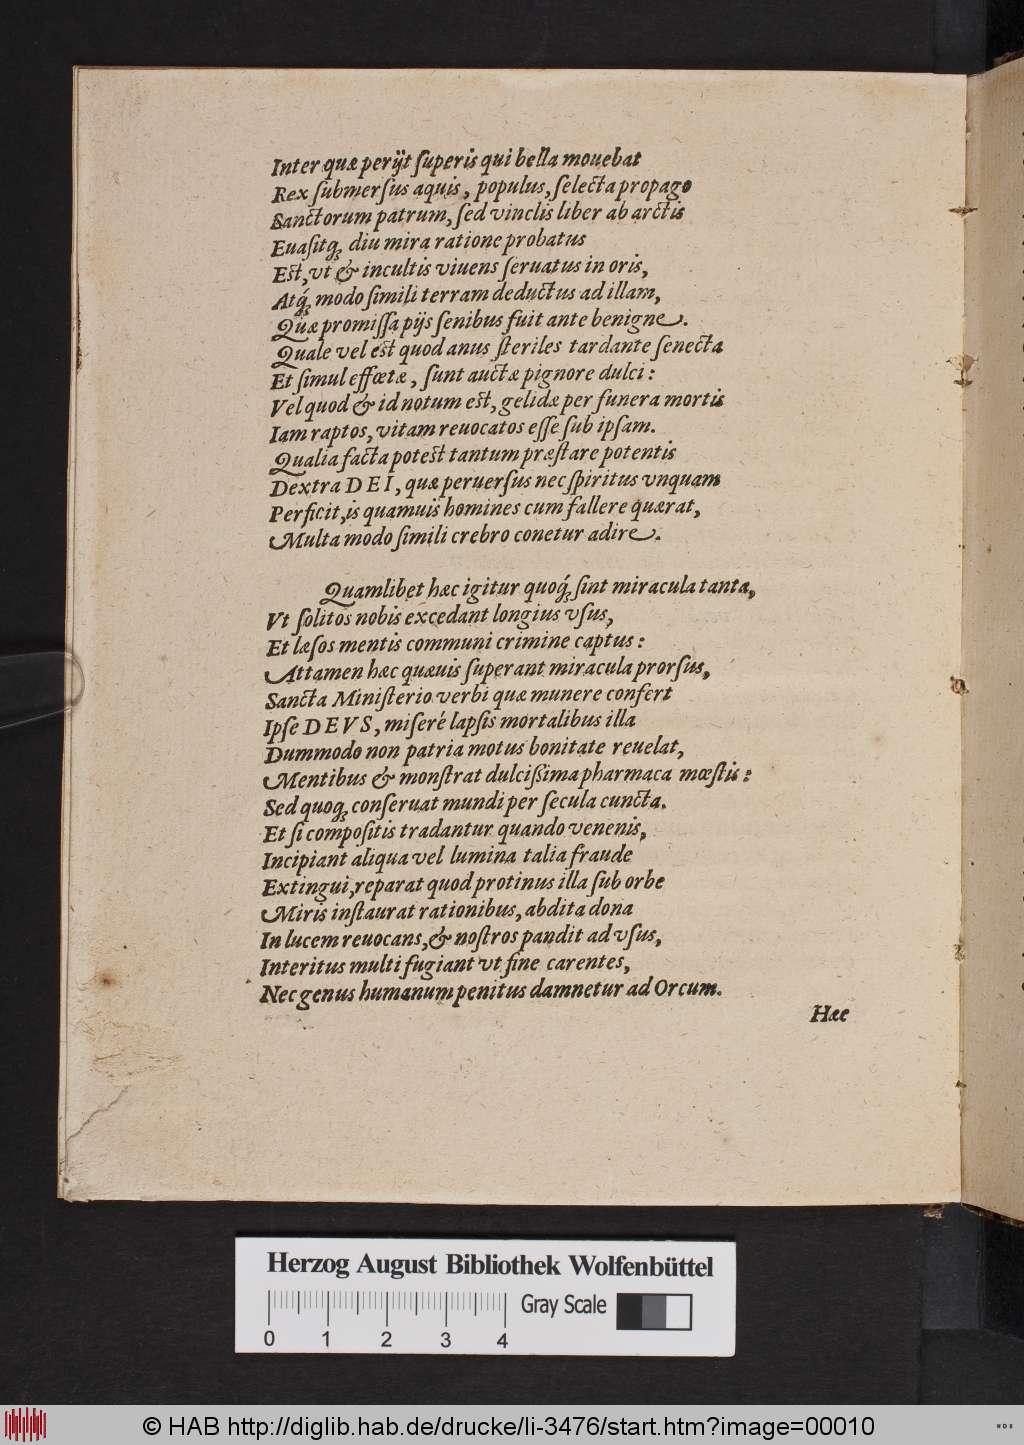 Inter quæ perijt ſuperis qui bella mouebat
Rex ſubmerſus aquis, populus, ſelecta propago
Sanctorum patrum, ſed vinclis liber ab arctis
Euaſitq́; diu mira ratione probatus
Eſt, vt & incultis viuens ſeruatus in oris,
Atq́; modo ſimili terram deductus ad illam,
Quæ promiſſa pijs ſenibus fuit ante benigne.
Quale vel eſt quod anus ſteriles tardante ſenecta
Et ſimul effœtæ, ſunt auctæ pignore dulci:
Vel quod & id notum eſt, gelidæ per funera mortis
Iam raptos, vitam reuocatos eſſe ſub ipſam.
Qualia facta poteſt tantum præſtare potentis
Dextra DEI, quæ peruerſus nec ſpiritus vnquam
Perficit, is quamuis homines cum fallere quærat,
Multa modo ſimili crebro conetur adire.
Quamlibet hæc igitur quoq́; ſint miracula tanta,
Vt ſolitos nobis excedant longius vſus,
Et læſos mentis communi crimine captus:
Attamen hæc quæuis ſuperant miracula prorſus,
Sancta Miniſterio verbi quæ munere confert
Ipſe DEVS, miſeré lapſis mortalibus illa
Dummodo non patria motus bonitate reuelat,
Mentibus & monſtrat dulciſsima pharmaca mœſtis:
Sed quoq; conſeruat mundi per ſecula cuncta.
Et ſi compoſitis tradantur quando venenis,
Incipiant aliqua vel lumina talia fraude
Extingui, reparat quod protinus illa ſub orbe
Miris inſtaurat rationibus, abdita dona
In lucem reuocans, & noſtros pandit ad vſus,
Interitus multi fugiant vt fine carentes,
Nec genus humanum penitus damnetur ad Orcum.
Hæc
Herzog August Bibliothek Wolfenbüttel
Gray Scale
0 1 2 3 4
© HAB http://diglib.hab.de/drucke/li-3476/start.htm?image=00010